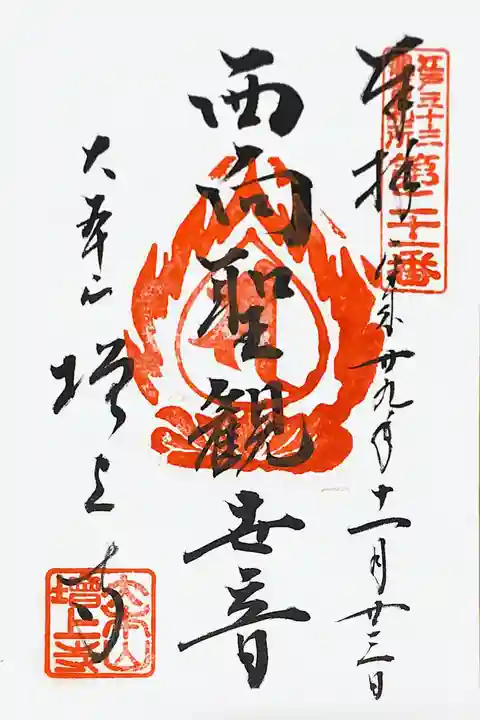 江戸三十三
観音札所
第二十一番
奉拝
平成廿九年十一月廿三日
西向聖観世音
大本山
増上寺
大本山
増上寺